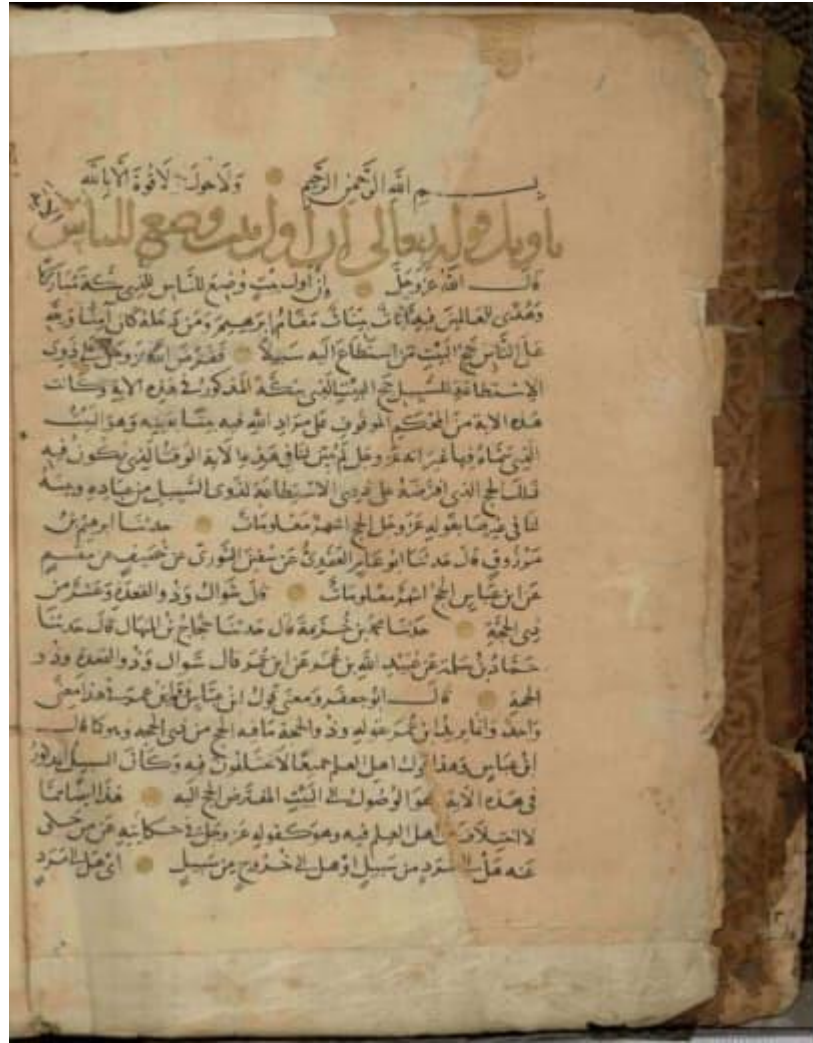 بسم الله الرحمن الرحيم ولا حول ولا قوة الا بالله
تاويل قوله تعالى ان اول بيت وضع للناس
الآية
قال الله عز وجل ان اول بيت وضع للناس للذي ببكة مباركا
وهدى للعالمين فيه آيات بينات مقام ابرهيم ومن دخله كان آمنا ولله
على الناس حج البيت من استطاع اليه سبيلا ففرض الله عز وجل على ذوي
الاستطاعة للسبيل حج البيت الذي ببكة المذكور في هذه الاية وكانت
هذه الاية من المحكم الموقوف على مراد الله فيه بيتا بعينه وهو البيت
الذي سماه فيها غير انه عز وجل لم يبين لنا في هذه الاية الوقت الذي يكون فيه
ذلك الحج الذي افترضه على ذوي الاستطاعة لذوي السبيل من عباده وبينه
لنا في غيرها بقوله عز وجل الحج اشهر معلومات حدثنا ابرهيم بن
مرزوق قال حدثنا ابو عامر العقدي عن سفين الثوري عن خصيف عن مقسم
عن ابن عباس الحج اشهر معلومات قال شوال وذو القعدة وعشر من
ذي الحجة حدثنا محمد بن خزيمة قال حدثنا حجاج بن المنهال قال حدثنا
حماد بن سلمة عن عبيد الله بن عمر عن ابن عمر قال شوال وذو القعدة وذو
الحجة قال ابو جعفر ومعنى قول ابن عباس وقول ابن عمر في هذا معنى
واحد وانما يريد ابن عمر بقوله وذو الحجة ما فيه الحج من ذي الحجة وهو كما قال
ابن عباس وهذا قول اهل العلم جميعا لا يختلفون فيه وكان السبيل المذكور
في هذه الاية هو الوصول الى البيت المفترض الحج اليه هذا ايضا مما
لا اختلاف بين اهل العلم فيه وهو كقوله عز وجل في حكايته عن من حكى
عنه هل الى مرد من سبيل او هل الى خروج من سبيل اي هل الى مرد